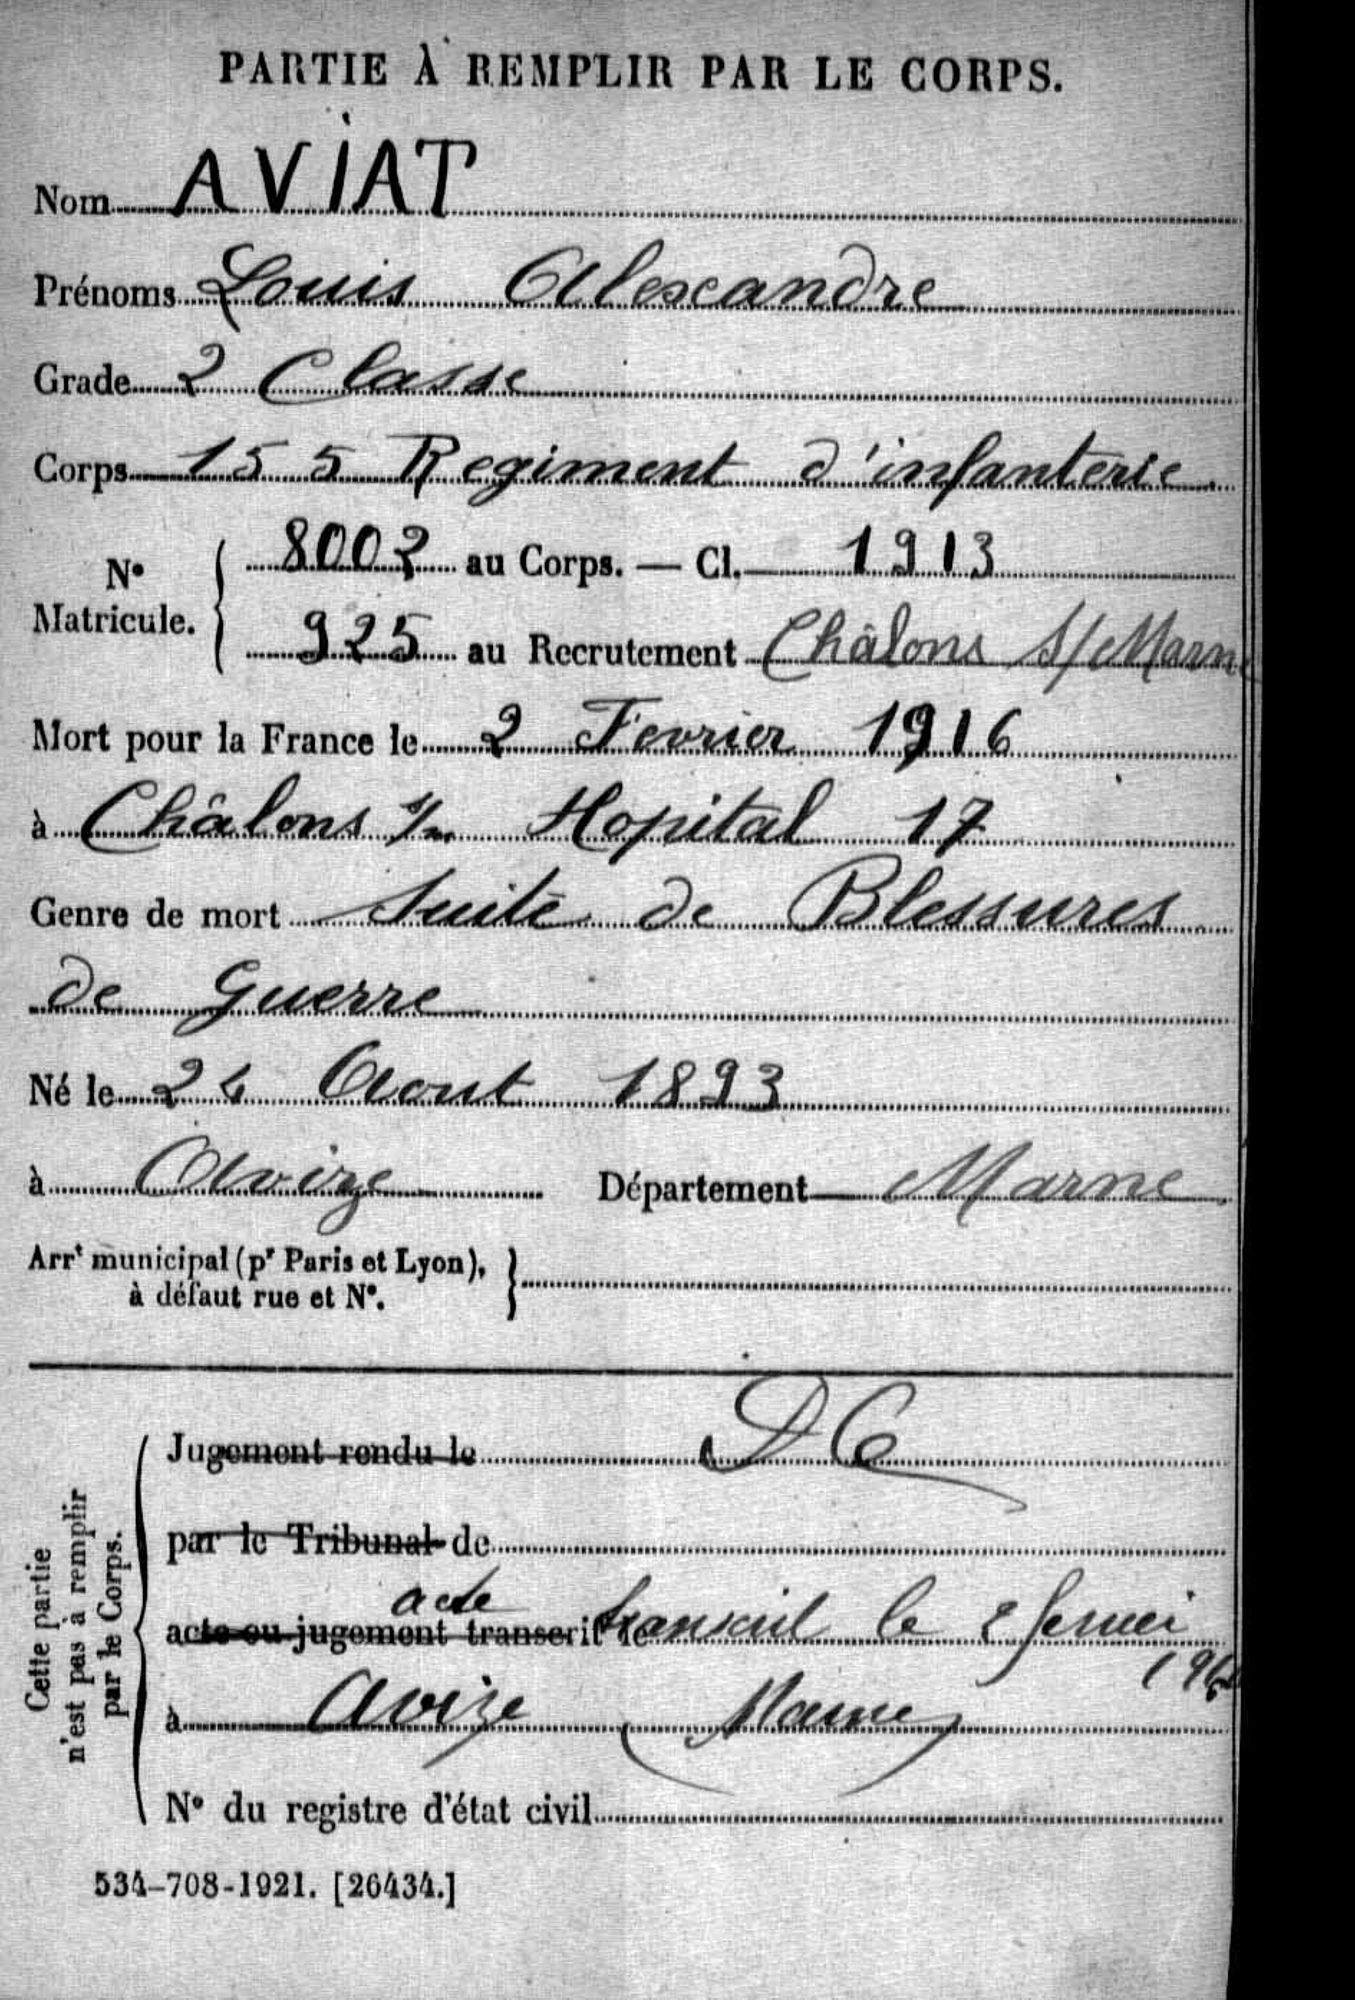 PARTIE À REMPLIR PAR LE CORPS.
Nom AVIAT
Prénoms Louis Alexandre
Grade 2 Classe
Corps 155 Regiment d'infanterie
N° Matricule. { 8002 au Corps. — Cl. 1913
925 au Recrutement Châlons S/Marne
Mort pour la France le 2 Fevrier 1916
à Châlons s/m Hopital 17
Genre de mort Suite de Blessures
de Guerre
Né le 24 Aout 1893
à Avize Département Marne
Arrt municipal (pr Paris et Lyon),
à défaut rue et N°. }
Cette partie
n'est pas à remplir
par le Corps.
Jugement rendu le DC
par le Tribunal de
acte
acte ou jugement transcrit le transcrit le
à Avize (Marne)
N° du registre d'état civil
534-708-1921. [26434.]